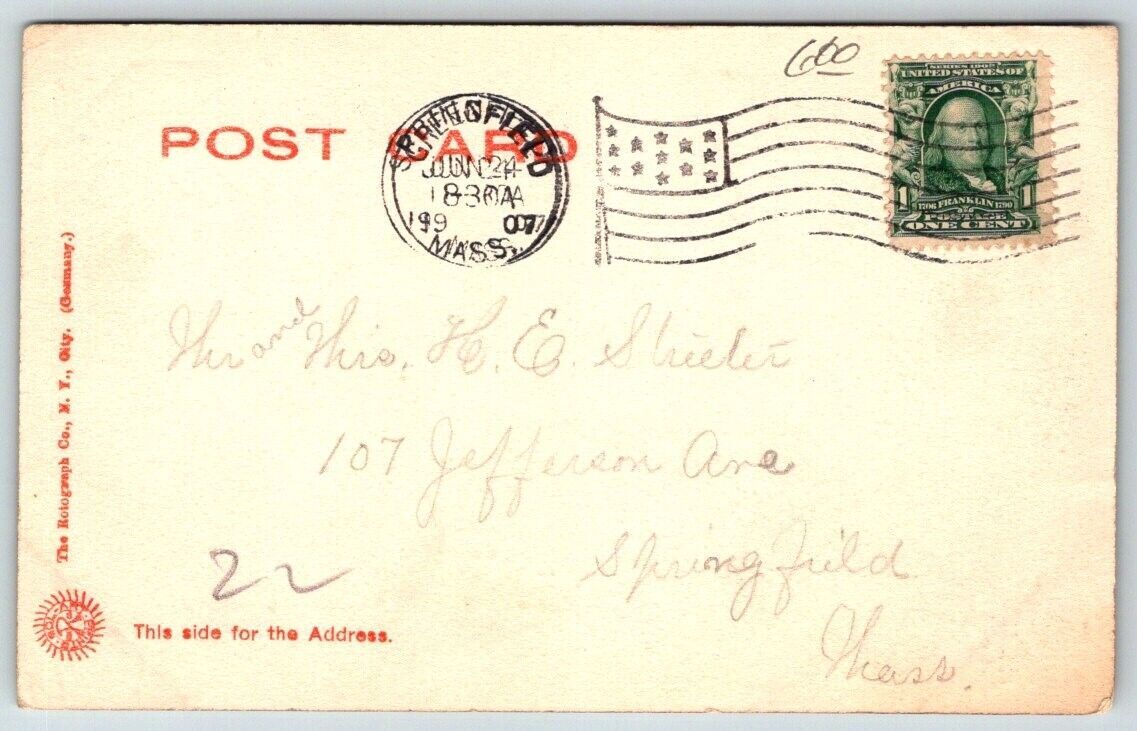 600
POST CARD
SERIES 1902
UNITED STATES OF
AMERICA
1
1706 FRANKLIN 1790
POSTAGE
ONE CENT
SPRINGFIELD
JUN 24
MASS.
Mr and Mrs. H. E. Streeter
107 Jefferson Ave
Springfield
Mass.
22
This side for the Address.
The Rotograph Co., N. Y., City. (Germany.)
SOL-ART PRINTS